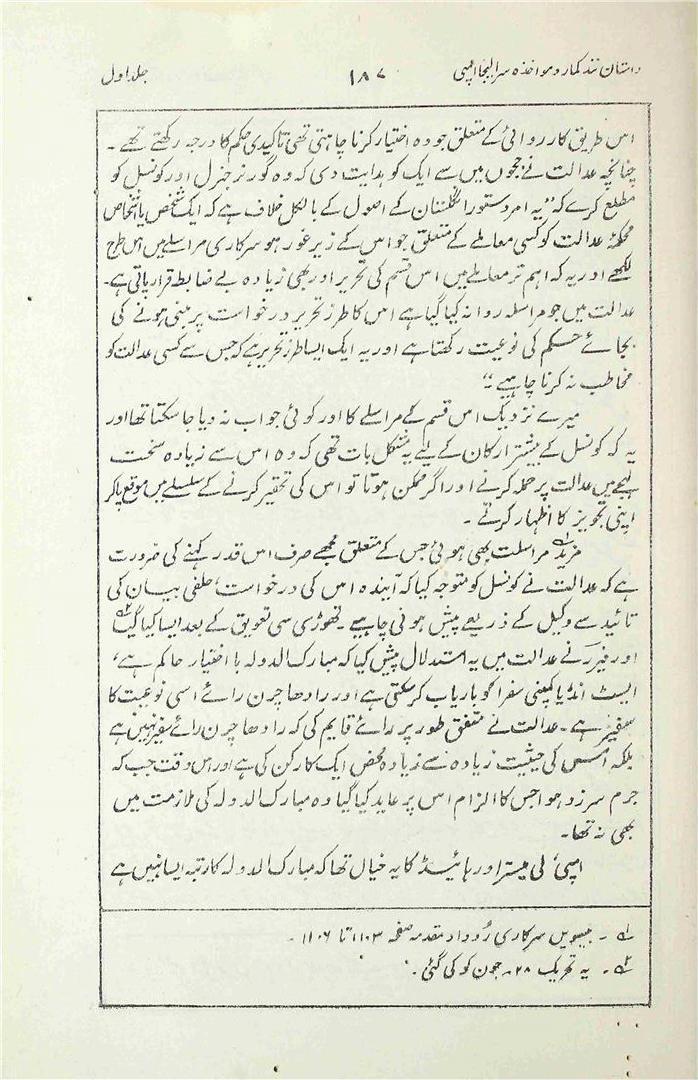 داستان نند کمار و مواخذہ سر الیجا امپی ۱۸۷ جلد اول
اس طریق کارروائی کے متعلق جو وہ اختیار کرنا چاہتی تھی تاکیدی حکم کا درجہ رکھتے تھے ۔
چنانچہ عدالت نے ججوں میں سے ایک کو ہدایت دی کہ وہ گورنر جنرل اور کونسل کو
مطلع کرے کہ ”یہ امر دستور انگلستان کے اصول کے بالکل خلاف ہے کہ ایک شخص یا اشخاص
محکمۂ عدالت کو کسی معاملے کے متعلق جو اس کے زیر غور ہو سرکاری مراسلے میں اس طرح
لکھے اور یہ کہ اہم تر معاملے میں اس قسم کی تحریر اور بھی زیادہ بے ضابطہ قرار پاتی ہے۔
عدالت میں جو مراسلہ روانہ کیا گیا ہے اس کا طرز تحریر درخواست پر مبنی ہونے کی
بجائے حکم کی نوعیت رکھتا ہے اور یہ ایک ایسا طرز تحریر ہے کہ جس سے کسی عدالت کو
مخاطب نہ کرنا چاہیے “
میرے نزدیک اس قسم کے مراسلے کا اور کوئی جواب نہ دیا جا سکتا تھا اور
یہ کہ کونسل کے بیشتر ارکان کے لیے یہ مشکل بات تھی کہ وہ اس سے زیادہ سخت
لہجے میں عدالت پر حملہ کرنے اور اگر ممکن ہوتا تو اس کی تحقیر کرنے کے سلسلے میں موقع پاکر
اپنی تجویز کا اظہار کرتے ۔
مزید مراسلت بھی ہوئی جس کے متعلق مجھے صرف اس قدر کہنے کی ضرورت
ہے کہ عدالت نے کونسل کو متوجہ کیا کہ آیندہ اس کی درخواست، حلفی بیان کی
تائید سے وکیل کے ذریعے پیش ہونی چاہیے ۔ تھوڑی سی تعویق کے بعد ایسا کیا گیا
اور فیرر نے عدالت میں یہ استدلال پیش کیا کہ مبارک الدولہ با اختیار حاکم ہے ،
ایسٹ انڈیا کمپنی سفرا کو باریاب کرسکتی ہے اور رادھا چرن رائے اسی نوعیت کا
سفیر ہے ۔ عدالت نے متفق طور پر رائے قایم کی کہ رادھا چرن رائے سفیر نہیں ہے
بلکہ اس کی حیثیت زیادہ سے زیادہ محض ایک کارکن کی ہے اور اس وقت جب کہ
جرم سرزد ہوا جس کا الزام اس پر عاید کیا گیا وہ مبارک الدولہ کی ملازمت میں
بھی نہ تھا۔
امپی، لی میسٹر اور ہائیڈ کا یہ خیال تھا کہ مبارک الدولہ کا رتبہ ایسا نہیں ہے
لہ ۔ بیسویں سرکاری رُوداد مقدمہ صفحہ ۱۱۰۳ تا ۱۱۰۶ ۔
۲ہ ۔ یہ تحریک ۲۸ ۔ جون کو کی گئی ۔